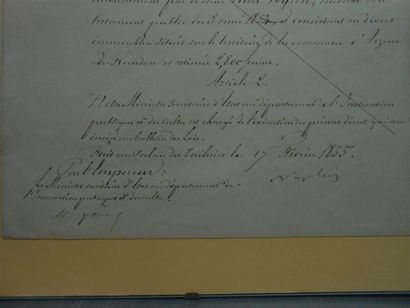 testament public du 8 mai 1854, et consistant en divers
immeubles situés sur le territoire de la commune d'Arzenc
de Randon et estimée 2,800 francs.
Article 2.
Notre Ministre Secrétaire d'Etat au département de l'Instruction
publique et des cultes est chargé de l'exécution du présent décret qui sera
inséré au bulletin des lois.
Fait au Palais des Tuileries le 17 Février 1855.
Par l'Empereur:
Le Ministre secrétaire d'Etat au département de
l'Instruction publique et des cultes